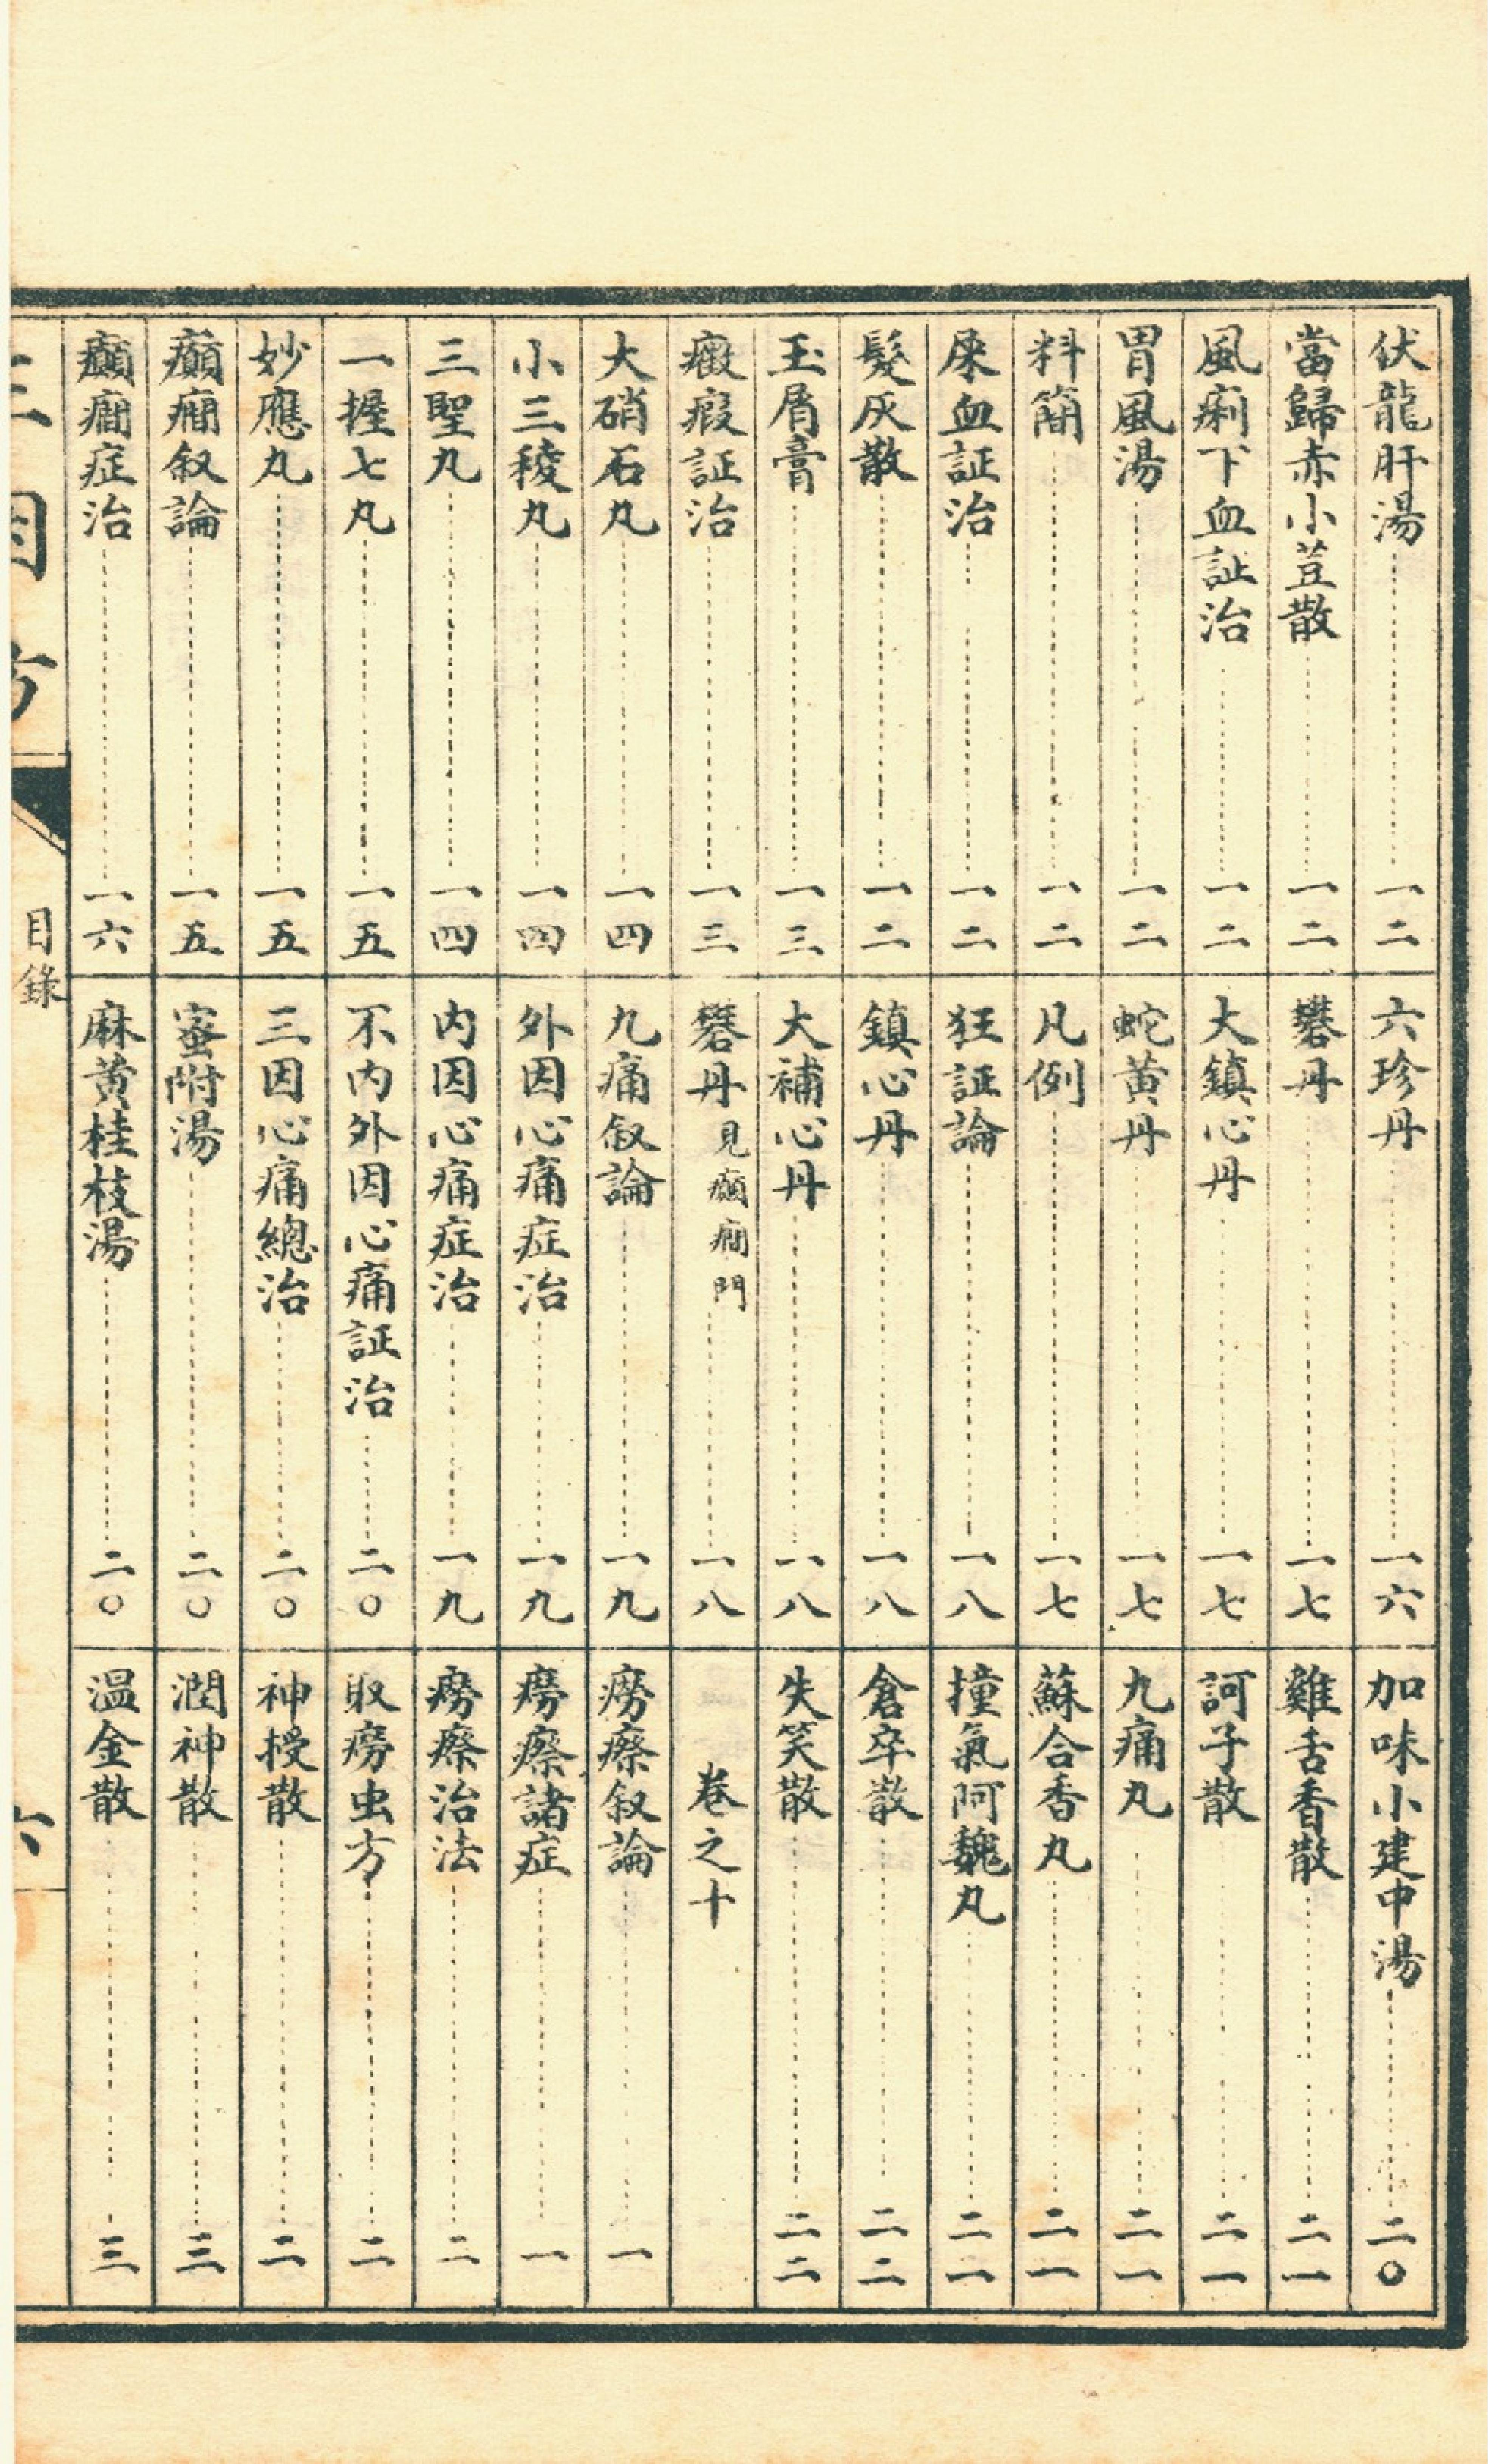 伏龍肝湯……一二
當歸赤小荳散……一二
風痢下血証治……一二
胃風湯……一二
料簡……一二
尿血証治……一二
髮灰散……一二
玉屑膏……一三
癥瘕証治……一三
大硝石丸……一四
小三稜丸……一四
三聖丸……一四
一握七丸……一五
妙應丸……一五
癲癇叙論……一五
癲癇症治……一六
六珍丹……一六
礬丹……一七
大鎮心丹……一七
蛇黃丹……一七
凡例……一七
狂証論……一八
鎮心丹……一八
大補心丹……一八
礬丹見癲癇門……一八
九痛叙論……一九
外因心痛症治……一九
内因心痛症治……一九
不内外因心痛証治……二〇
三因心痛總治……二〇
蜜附湯……二〇
麻黄桂枝湯……二〇
加味小建中湯……二〇
雞舌香散……二一
訶子散……二一
九痛丸……二一
蘇合香丸……二一
撞氣阿魏丸……二一
倉卒散……二二
失笑散……二二
卷之十
癆瘵叙論……一
癆瘵諸症……一
癆瘵治法……二
取癆虫方……二
神授散……二
潤神散……三
温金散……三
三因方
目錄
六